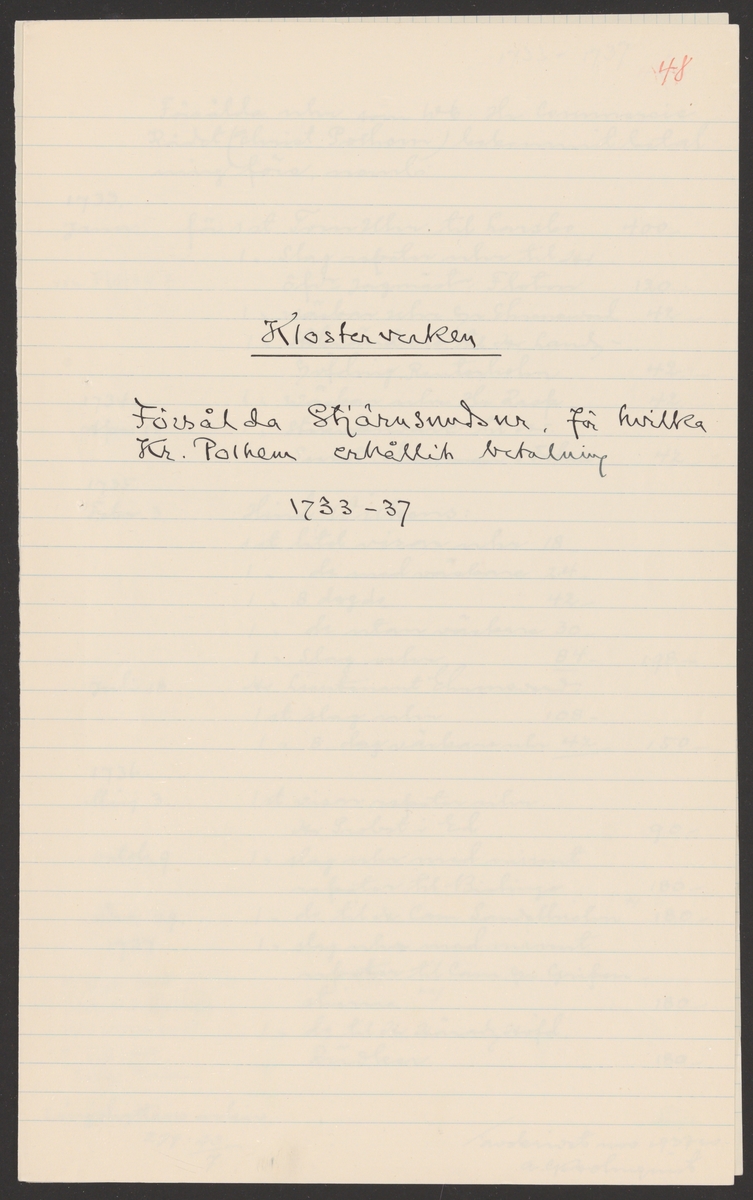 48
Klosterverken
Försålda Stjärnsundsur, för hvilka
Kr. Polhem erhållit betalning
1733-37